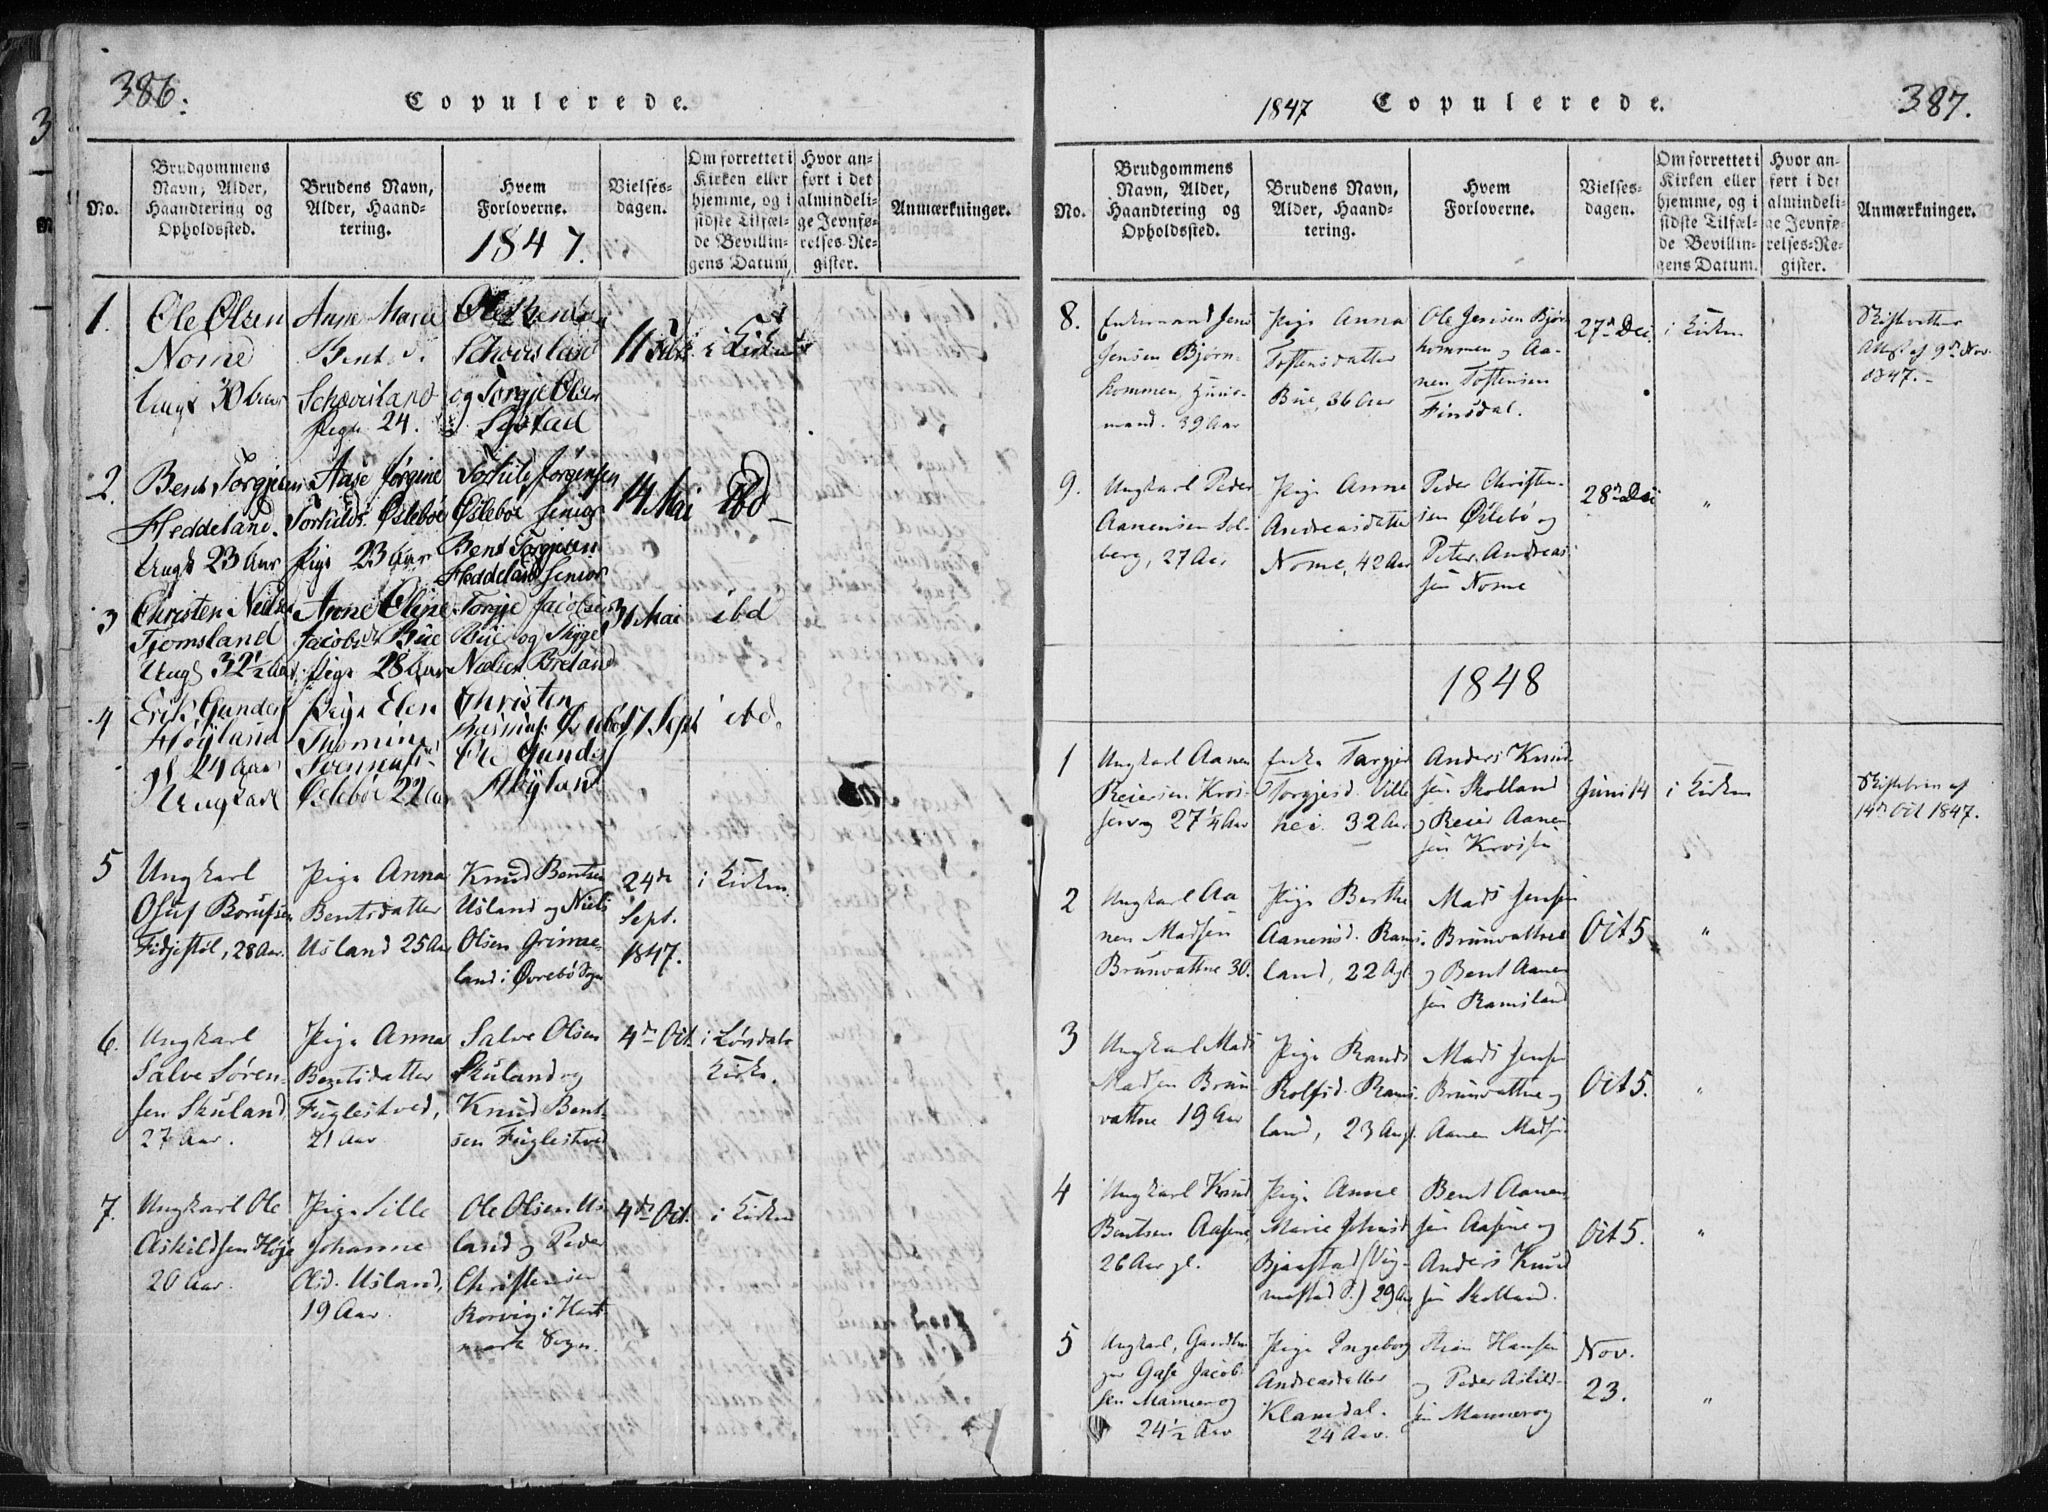 386.
Copulerede.
No.
Brudgommens
Navn, Alder,
Haandtering og
Opholdssted.
Brudens Navn,
Alder, Haand-
tering.
Hvem
Forloverne.
1847.
Vielses-
dagen.
Om forrettet i
Kirken eller
hjemme, og i
sidste Tilfæl-
de Bevillin-
gens Datum.
Hvor an-
ført i det
almindeli-
ge Jevnfø-
relses-Re-
gister.
Anmærkninger.
1.
Ole Olsen
Nome
Ungk 30 Aar
Anne Marie
Bent. d.
Schovesland
Pige 24.
Ole
Schovesland
og Torgje Olsen
Systad
11 Febr
i Kirken
2.
Bent Torgjesen
Heddeland.
Ungk 23 Aar
Aase Jørgine
Torkilds. Øslebøe
Pige 23 Aar
Torkild Jørgensen
Øslebøe Senior
Bent Torgjesen
Heddeland Senior
14 Mai
ibd
3
Christen Niels
Tjomsland
Ungk 32½ Aar
Anne Oline
Jacobs dr Büe
Pige 28 Aar
Torgje Jacobsen
Büe og
Nielsen Breland
31 Mai
ibd
4
Erik Gunders
Høyland
24 Aar
Ungkarl
Pige Elen
Thomine
Svennings
Øslebøe 22 Aar
Christen
Rasmus. Øslebø
Ole Gunders
Høyland
17 Sept
ibd.
5
Ungkarl
Oluf Borufsen
Fidjestøl, 28 Aar.
Pige Anna
Bentsdatter
Usland 25 Aar
Knud Bentsen
Usland og Niels
Olsen Grime-
land i Øvrebø Sogn
24de
Sept.
1847.
i Kirken
6.
Ungkarl
Salve Søren-
sen Skuland,
27 Aar.
Pige Anna
Bentsdatter
Fuglestved,
21 Aar
Salve Olsen
Skuland og
Knud Bent-
sen Fuglestved
4de Oct.
i Løvdals
Kirke.
7.
Ungkarl Ole
Askildsen Høye
20 Aar.
Pige Sille
Johanne
Olsd. Usland,
19 Aar.
Ole Olsen Us-
land og Peder
Christensen
Rorvig i Hart-
mark Sogn.
4de Oct.
i Kirken
1847
Copulerede.
387.
No.
Brudgommens
Navn, Alder,
Haandtering og
Opholdssted.
Brudens Navn,
Alder, Haand-
tering.
Hvem
Forloverne.
Vielses-
dagen.
Om forrettet i
Kirken eller
hjemme, og i
sidste Tilfæl-
de Bevillin-
gens Datum.
Hvor an-
ført i det
almindeli-
ge Jevnfø-
relses-Re-
gister.
Anmærkninger.
8.
Enkemand Jens
Jensen Bjørn-
kommen, Huus-
mand. 39 Aar
Pige Anna
Tostensdatter
Büe, 36 Aar
Ole Jensen Bjørn
kommen og Aa-
nen Tostensen
Finsdal.
27de Dec.
i Kirken
Skifteretten
Attest af 9de Nov.
1847.
9.
Ungkarl Peder
Aanensen Sol-
berg, 27 Aar
Pige Anne
Andreasdatter
Nome, 42 Aar
Peder Christen-
sen Øslebø og
Peter Andreas
sen Nome
28de Dec
"
1848
1
Ungkarl Aanen
Reiersen Kros-
sen 27¼ Aar
Enke Torgjer
Torgjersd. Ville
hei. 32 Aar
Anders Knud
sen Skolland
og Reier Aanen
sen Krossen
Juni 14
i Kirken
Skiftebrev af
14de Oct 1847.
2
Ungkarl Aa
nen Madsen
Brunvattne 30.
Pige Berthe
Aanensd. Rams-
land, 22 A gl.
Mads Jensen
Brunvattne
og Bent Aanen
sen Ramsland
Oct 5
"
3
Ungkarl Mads
Madsen Brun-
vattne 19 Aar
Pige Randi
Rolfsd. Rams-
land, 23 A gl.
Mads Jensen
Brunvattne og
Aanen Madsen
Oct 5.
"
4
Ungkarl Knud
Bentsen Aasene,
26 Aar gl.
Pige Anne
Marie Johnsd
Bjaastad (Vig-
mostad P.) 29 Aar
Bent Aanen
sen Aasene og
Anders Knud
sen Skolland.
Oct 5.
"
5
Ungkarl, Gaardbru
ger Gase Jacob-
sen Mannerog
24½ Aar
Pige Ingeborg
Andreasdatter
Klamdal.
24 Aar.
Hansen
og Peder Askild-
sen Mannerog
Nov.
23.
"